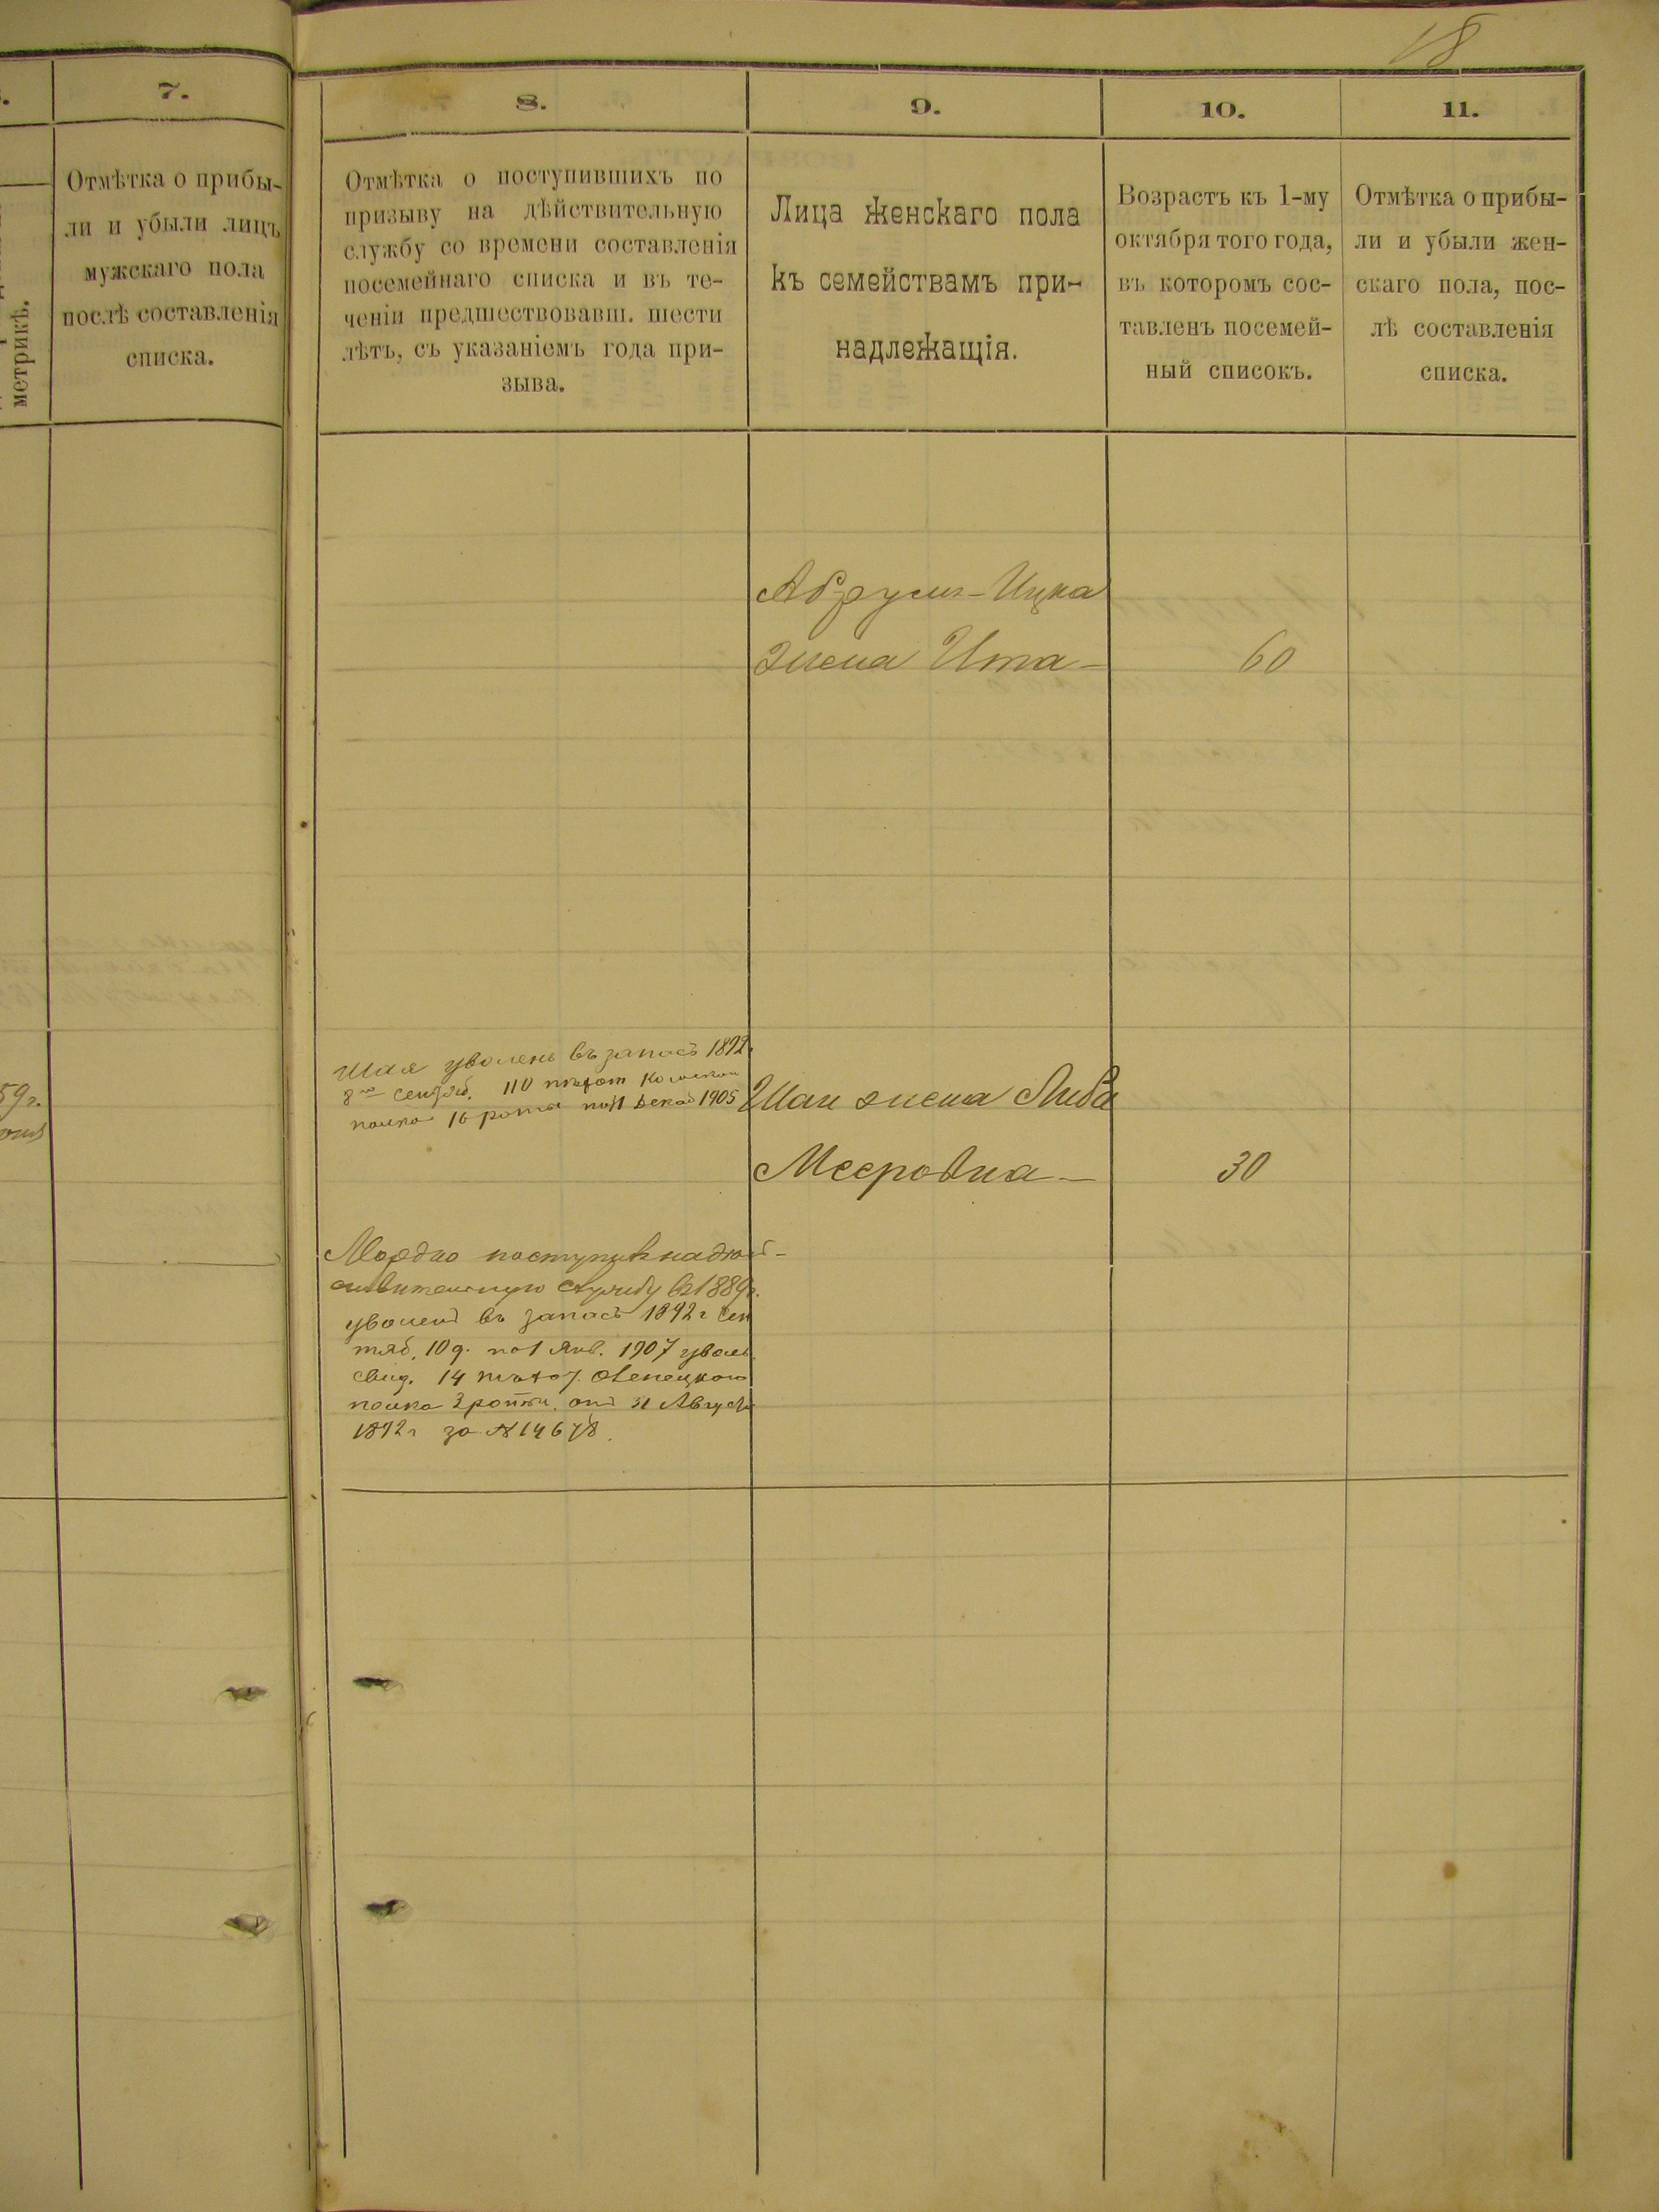 18
7.
Отмѣтка о прибы-
ли и убыли лицъ
мужскаго пола
послѣ составленія
списка.
метрикѣ.
59 г.
8.
Отмѣтка о поступившихъ по
призыву на дѣйствительную
службу со времени составленія
посемейнаго списка и въ те-
ченіи предшествовавш. шести
лѣтъ, съ указаніемъ года при-
зыва.
9.
Лица женскаго пола
къ семействамъ при-
надлежащія.
10.
Возрастъ къ 1-му
октября того года,
въ которомъ сос-
тавленъ посемей-
ный списокъ.
11.
Отмѣтка о прибы-
ли и убыли жен-
скаго пола, пос-
лѣ составленія
списка.
Абрумъ-Ицка
жена Ита- 60
Шая уволенъ въ запасъ 1892.
8го Сентяб. 110 пѣхот Камскаго
полка 16 роты по 1 Декаб 1905
Шаи жена Либа
Мееровна- 30
Мордко поступилъ на дѣй-
ствительную службу въ 1889г.
уволенъ въ запасъ 1892 г Сен
тяб. 10 д. по 1 Янв. 1907 увол.
свид. 14 пѣхот. Олонецкого
полка 2 роты. отъ 31 Августа
1892 г за № 14678.